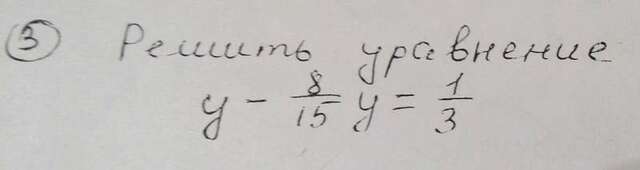 ③ Решить уравнение
y - 8/15 y = 1/3